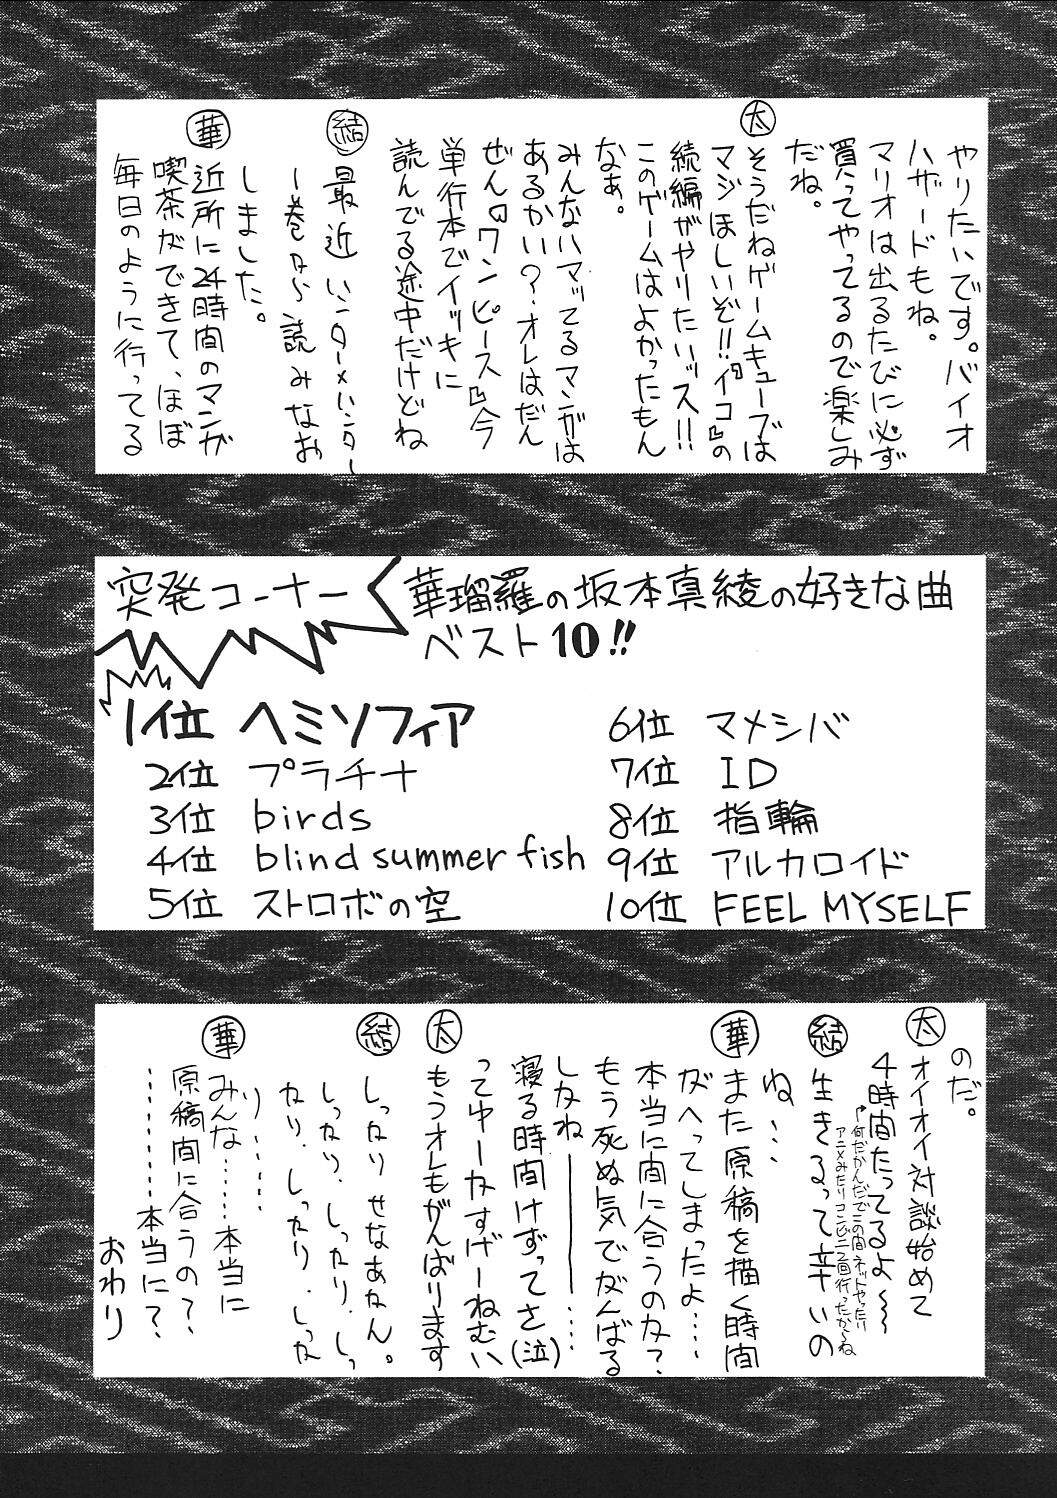 やりたいです。バイオ
ハザードもね。
マリオは出るたびに必ず
買ってやってるので楽しみ
だね。
太
そうだねゲームキューブは
マジほしいぞ!!『イコ』の
続編がやりたいッス!!
このゲームはよかったもん
なぁ。
みんなハマッてるマンガは
あるかい?オレはだん
ぜん『ワンピース』今
単行本でイッキに
読んでる途中だけどね
結
最近ハンターハンター
一巻から読みなお
しました。
華
近所に24時間のマンガ
喫茶ができて、ほぼ
毎日のように行ってる
突発コーナー
華瑠羅の坂本真綾の好きな曲
ベスト10!!
1位 ヘミソフィア
2位 プラチナ
3位 birds
4位 blind summer fish
5位 ストロボの空
6位 マメシバ
7位 ID
8位 指輪
9位 アルカロイド
10位 FEEL MYSELF
のだ。
太
オイオイ対談始めて
4時間たってるよ〜〜
何だかんだでこの間ネットやったり
アニメみたりコンビニ2回行ったからね
結
生きるって辛いの
ね…
華
また原稿を描く時間
がへってしまったよ……
本当に間に合うのか?
もう死ぬ気でがんばる
しかね――――……
寝る時間けずってさ(泣)
ってゆーかすげーねむい
太
もうオレもがんばります
結
しっかりせなあかん。
しっかり.しっかり.しっ
かり.しっかり.しっか
り……
華
みんな……本当に
原稿間に合うの?
……本当に?
おわり